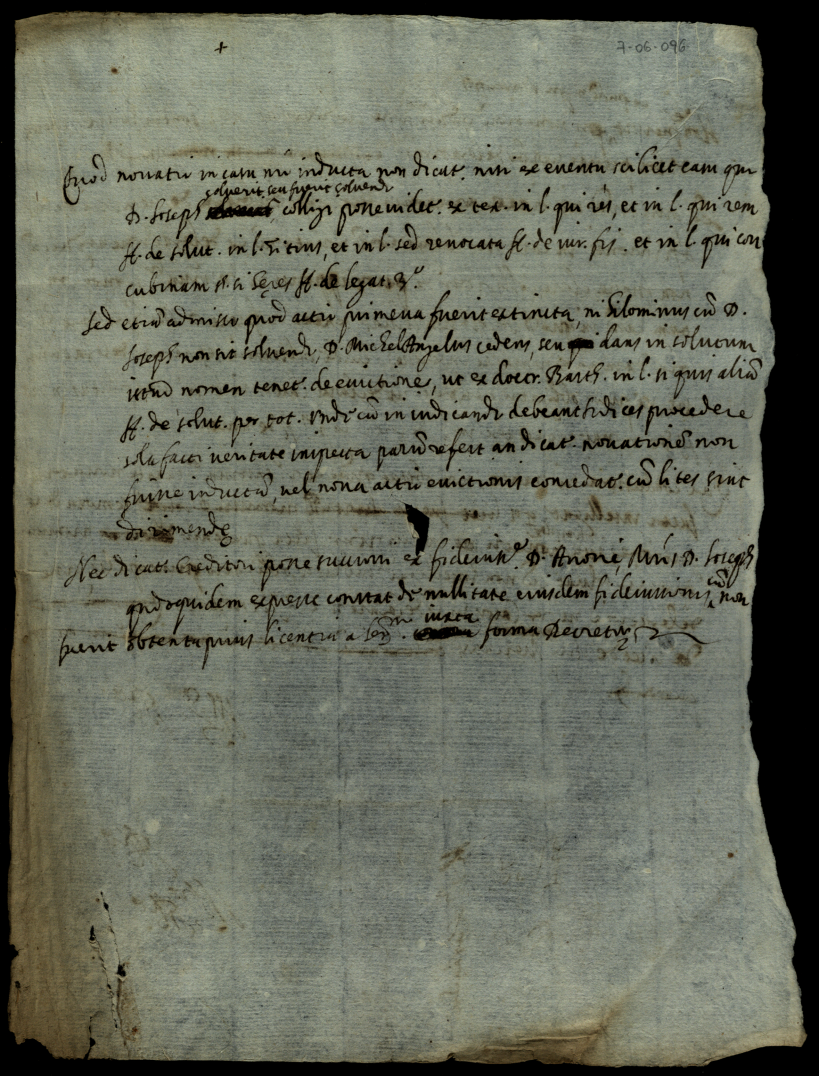 +
7-06-096
Quod novatio in casu nõ inducta non dicat. nisi ex eventu scilicet eam qm
solverit, seu fuerit solvendo
D. Joseph colligi posse videt. ex tex. in l. qui res, et in l. qui rem
ff. de solut. in l. Titius, et in l. sed revocata ff. de iur. fis. et in l. qui con
cubinam §. si heres ff. de legat. 3.º
Sed etiã admisso quod actio primeva fuerit extincta, nihilominus cũ D.
Joseph non sit solvendo, D. Michel Angelus cedens, seu dans in solutum
istud nomen tenet. de evictione, ut ex doctr. Barth. in l. si quis aliã
ff. de solut. per tot. Unde cũ in iudicando debeant iudices procedere
sola facti veritate inspecta parũ refert an dicat. novationẽ non
fuisse inductã, vel nova actio evictionis concedat. cũ lites sint
dirimende
Nec dicat. Creditori posse succurri ex fideiuss.e D. Anone, Mris D. Joseph
quãdoquidem expresse constat de nullitate eiusdem fideiussionis, cũ non
iuxta
fuerit obtenta prius licentia a Sen. forma Decretor.